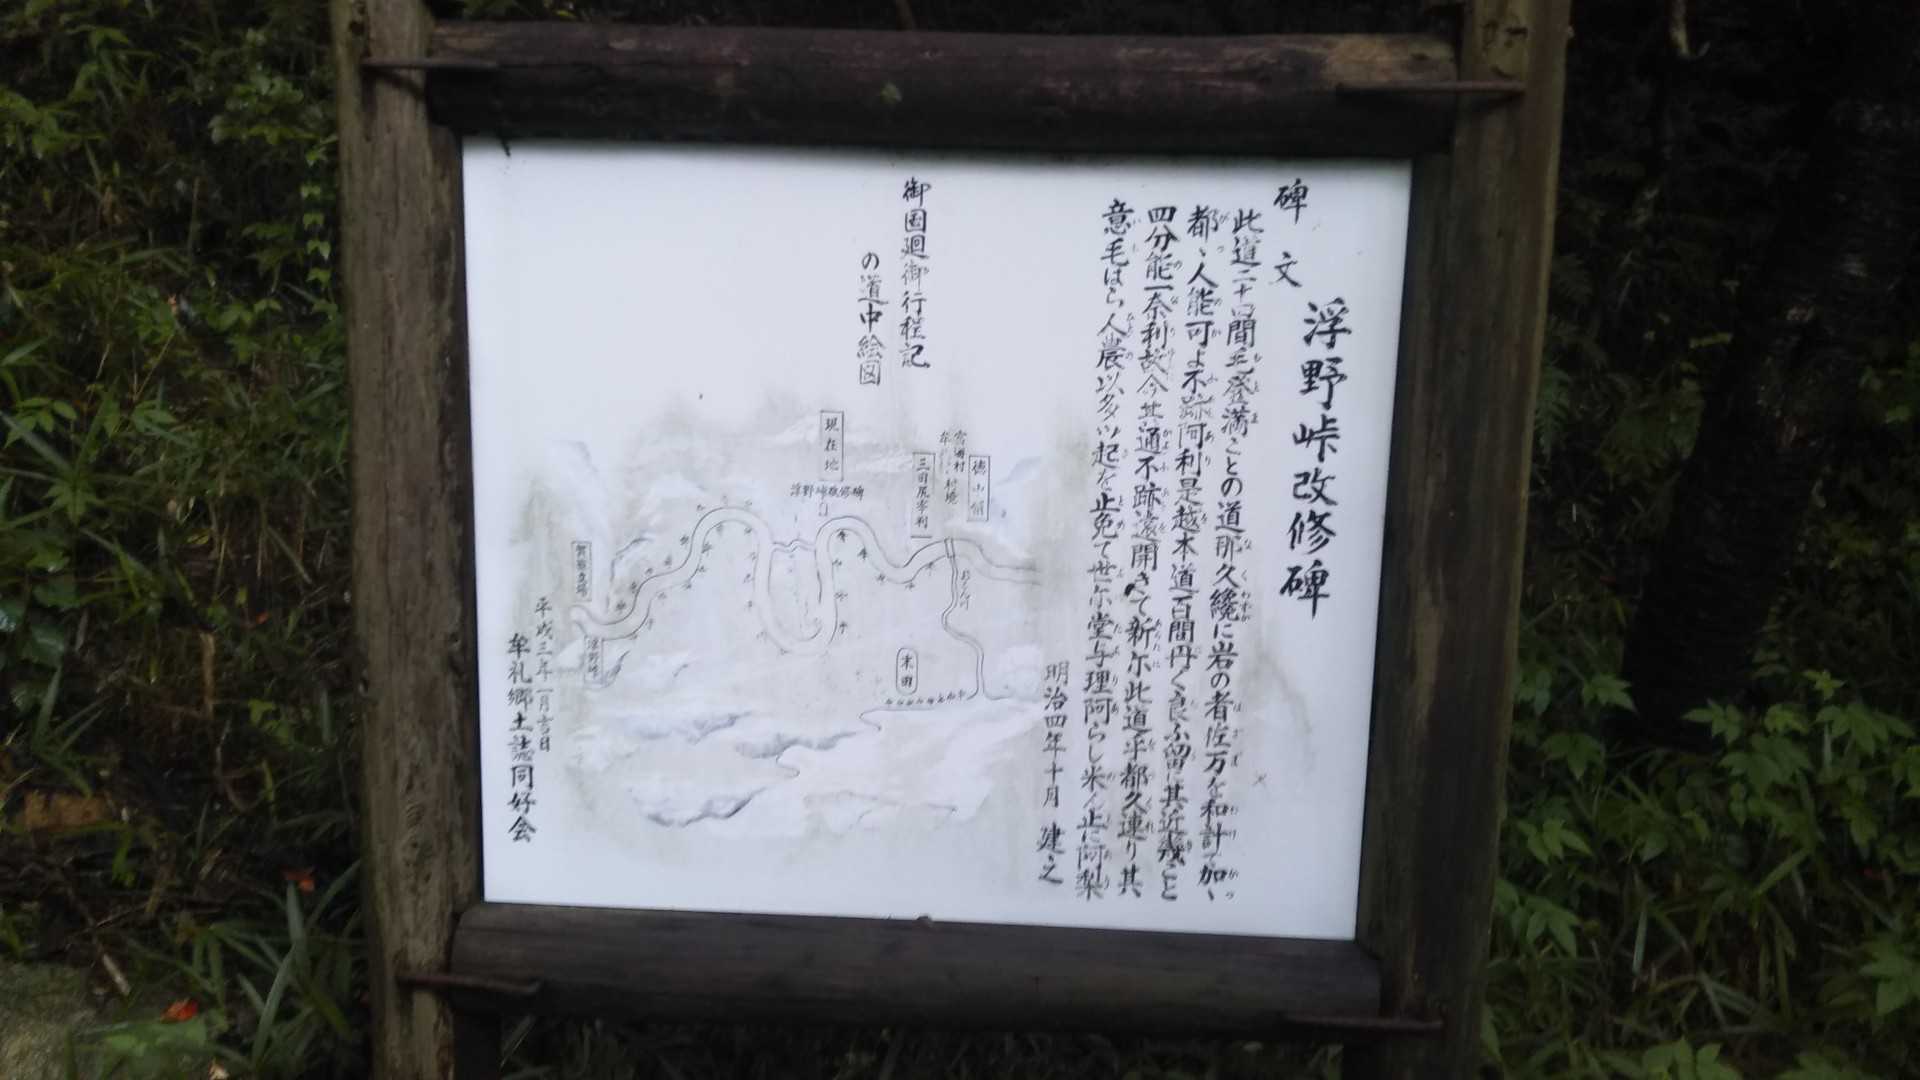 浮野峠改修碑
碑文
此道二十四間毛登満ことの道那久纔に岩の者佐万を和計て加ヽ
都ヽ人能可よ不跡阿利是越本道百間円く良ふ留に其近幾こと
四分能一奈利故今其通不跡遠開きて新尓此道平都久連り其
意毛はら人農以多ツ起を止免て世尓堂与理阿らし米ん止に阿梨
明治四年十月 建之
御国廻御行程記
の道中絵図
徳山領
宮洲村
村境
三田尻宰判
現在地
浮野峠改修碑
末田
浮野峠
平成三年一月吉日
牟礼郷土誌同好会